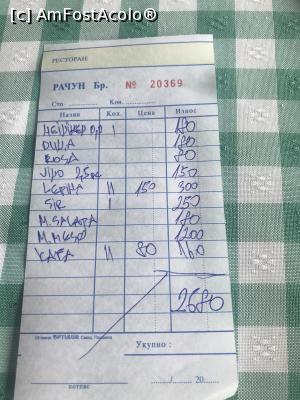 (c) AmFostAcolo®
РЕСТОРАН
РАЧУН Бр. № 20369
Сто Кон.
Назив Кол. Цена Износ
I 180
DUNJA 180
ROSA 80
150
LEPINJA II 150 300
SIR I 250
M. SALATA 180
M. MESO 1200
KAFA II 80 160
2680
Укупно :
потпис 20